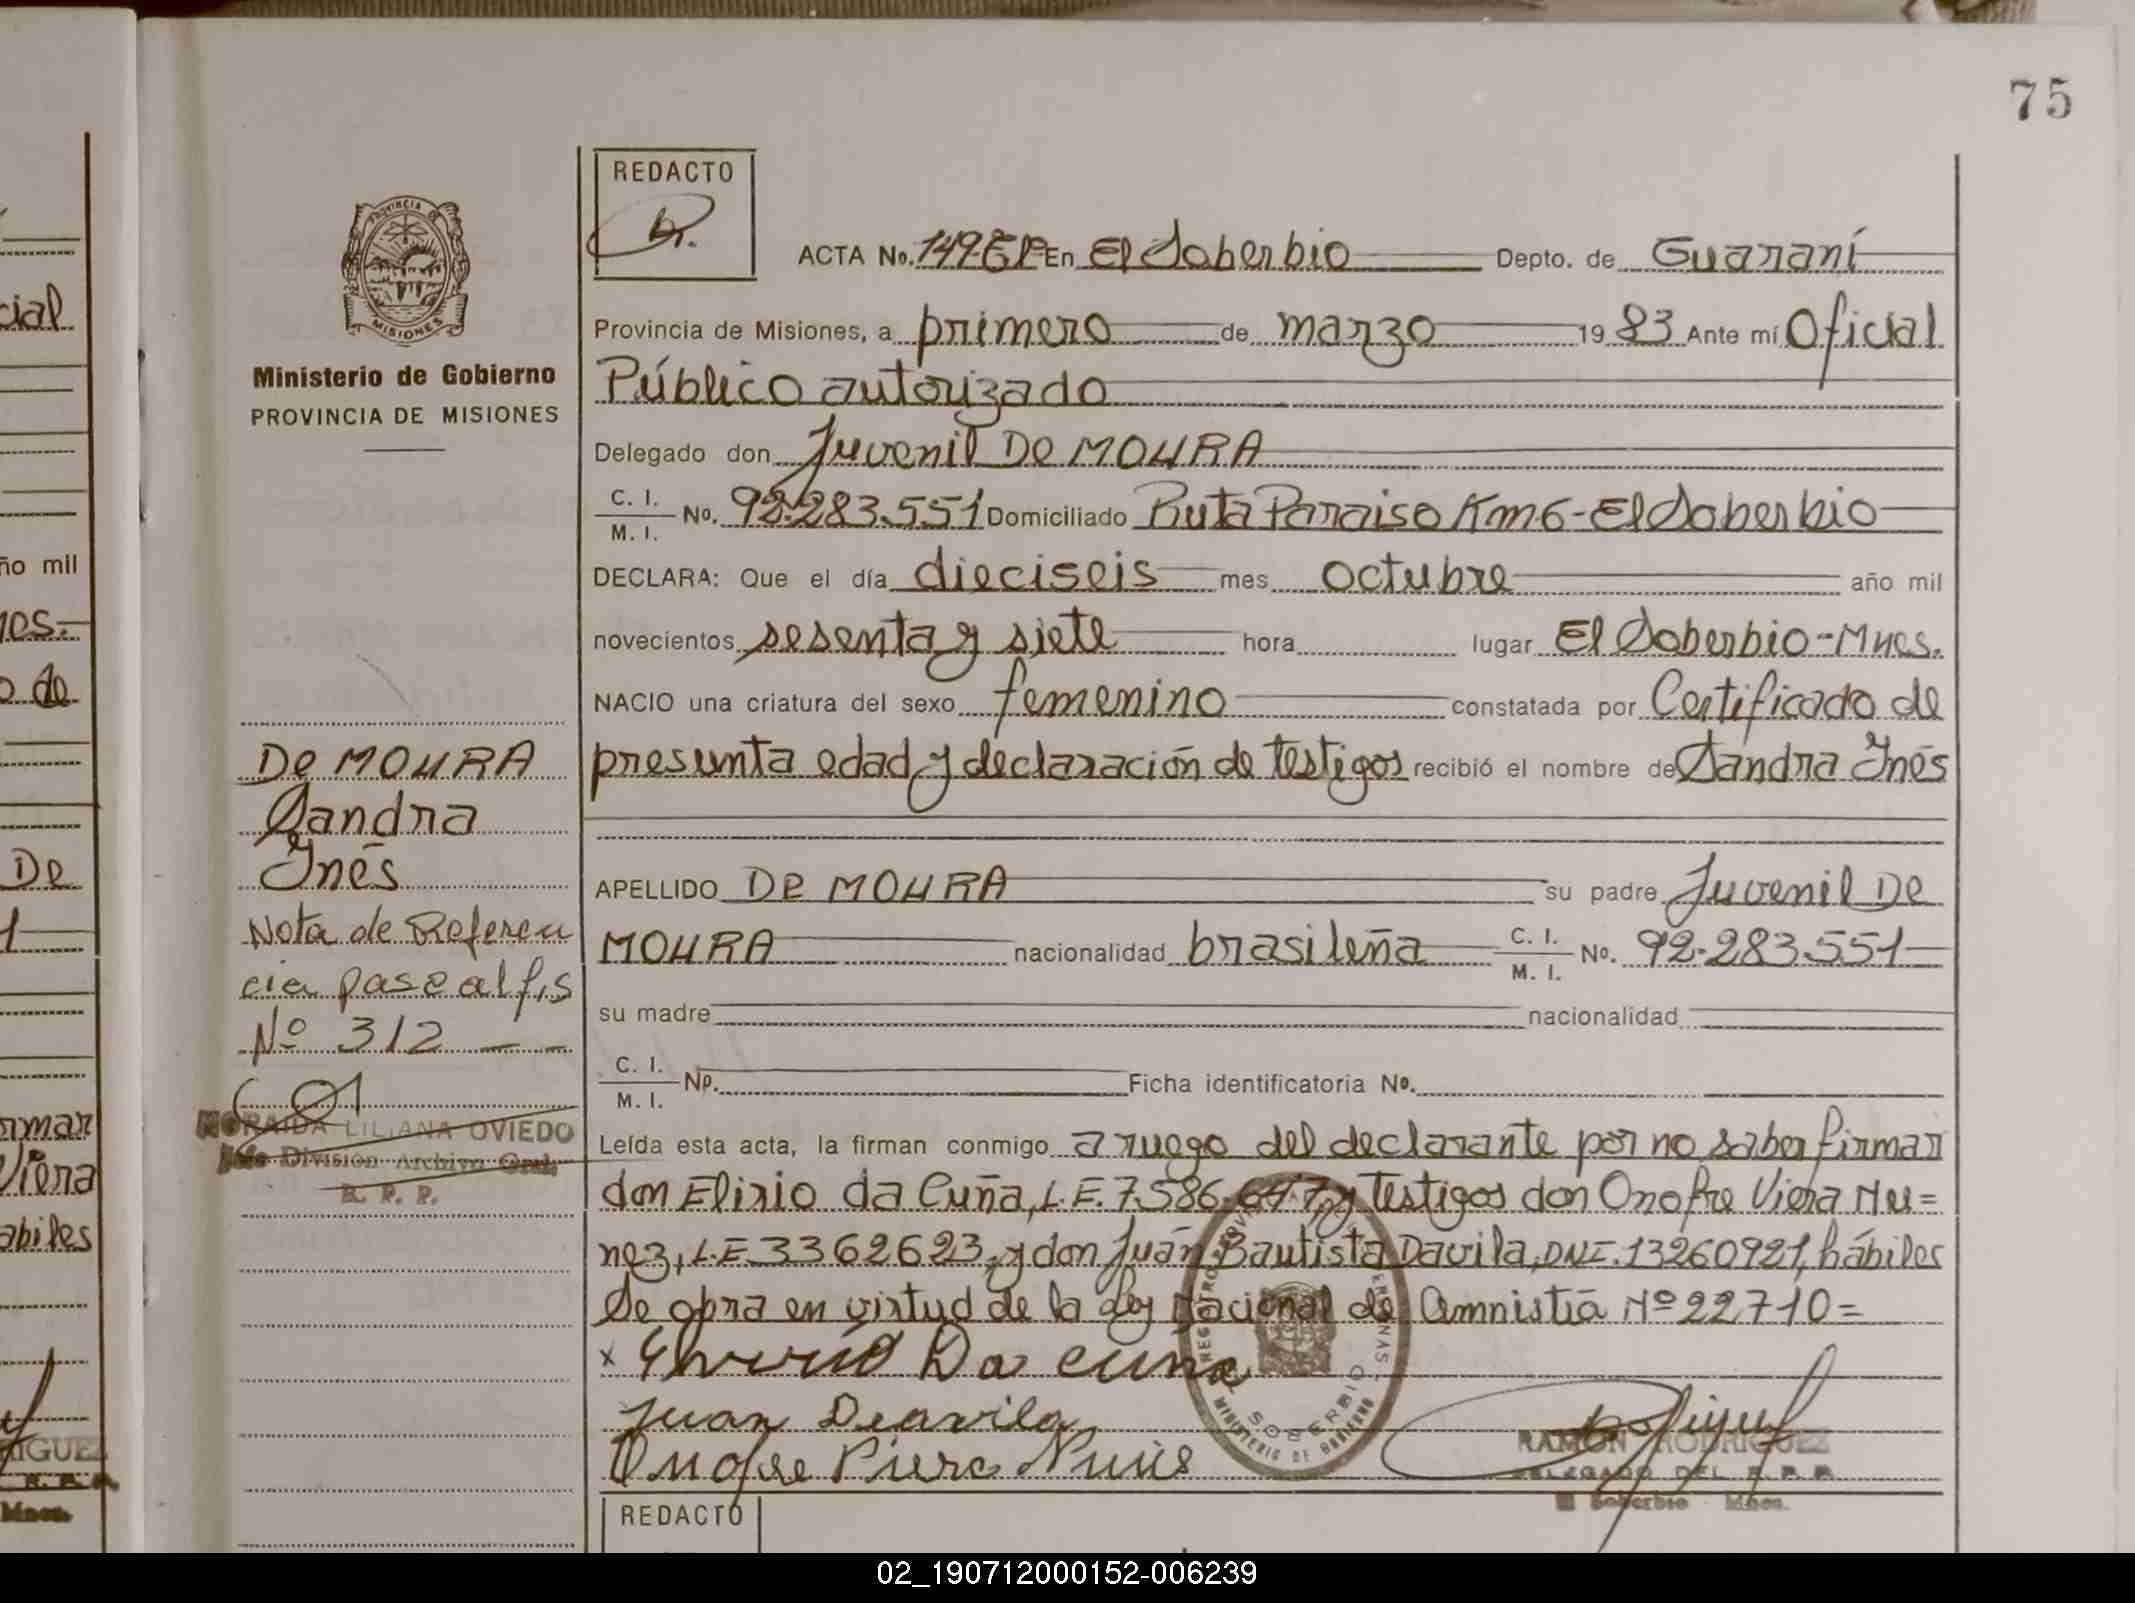 75
REDACTO
ACTA No. 149 En El Soberbio Depto. de Guaraní
Provincia de Misiones, a primero de marzo 1983 Ante mí Oficial
Público autorizado
Delegado don Juvenil De MOURA
C. I. M. I. No. 92.283.551 Domiciliado Ruta Paraiso Km 6 - El Soberbio
DECLARA: Que el día dieciseis mes octubre año mil
novecientos sesenta y siete hora lugar El Soberbio - Mnes.
NACIO una criatura del sexo femenino constatada por Certificado de
presunta edad y declaración de testigos recibió el nombre de Sandra Inés
APELLIDO De MOURA su padre Juvenil De
MOURA nacionalidad brasileña C. I. M. I. No. 92.283.551
su madre nacionalidad
C. I. M. I. No. Ficha identificatoria No.
Leída esta acta, la firman conmigo a ruego del declarante por no saber firmar
don Elirio da Cuña, L.E. 7.586.647, y testigos don Onofre Viera Nu=
nez, L.E. 3362623, y don Juán Bautista Davila, DNI. 13260921, hábiles
Se obra en virtud de la Ley Nacional de Amnistía Nº 22710 =
x Da Cuna
Juan Deavila
RAMON RODRIGUEZ
DELEGADO DEL R. P. P.
El Soberbio - Mnes.
SOBERBIO
MINISTERIO DE GOBIERNO
REDACTO
PROVINCIA DE
MISIONES
Ministerio de Gobierno
PROVINCIA DE MISIONES
De MOURA
Sandra
Inés
Nota de Referen
cia pase al fjs
Nº 312
NORAIDA LILIANA OVIEDO
Jefe Division Archivo Gral.
R. P. P.
cial
ño mil
nes.
o de
De
1
irmar
Viera
abiles
RIGUEZ
R. P. P.
Mnes.
02_190712000152-006239